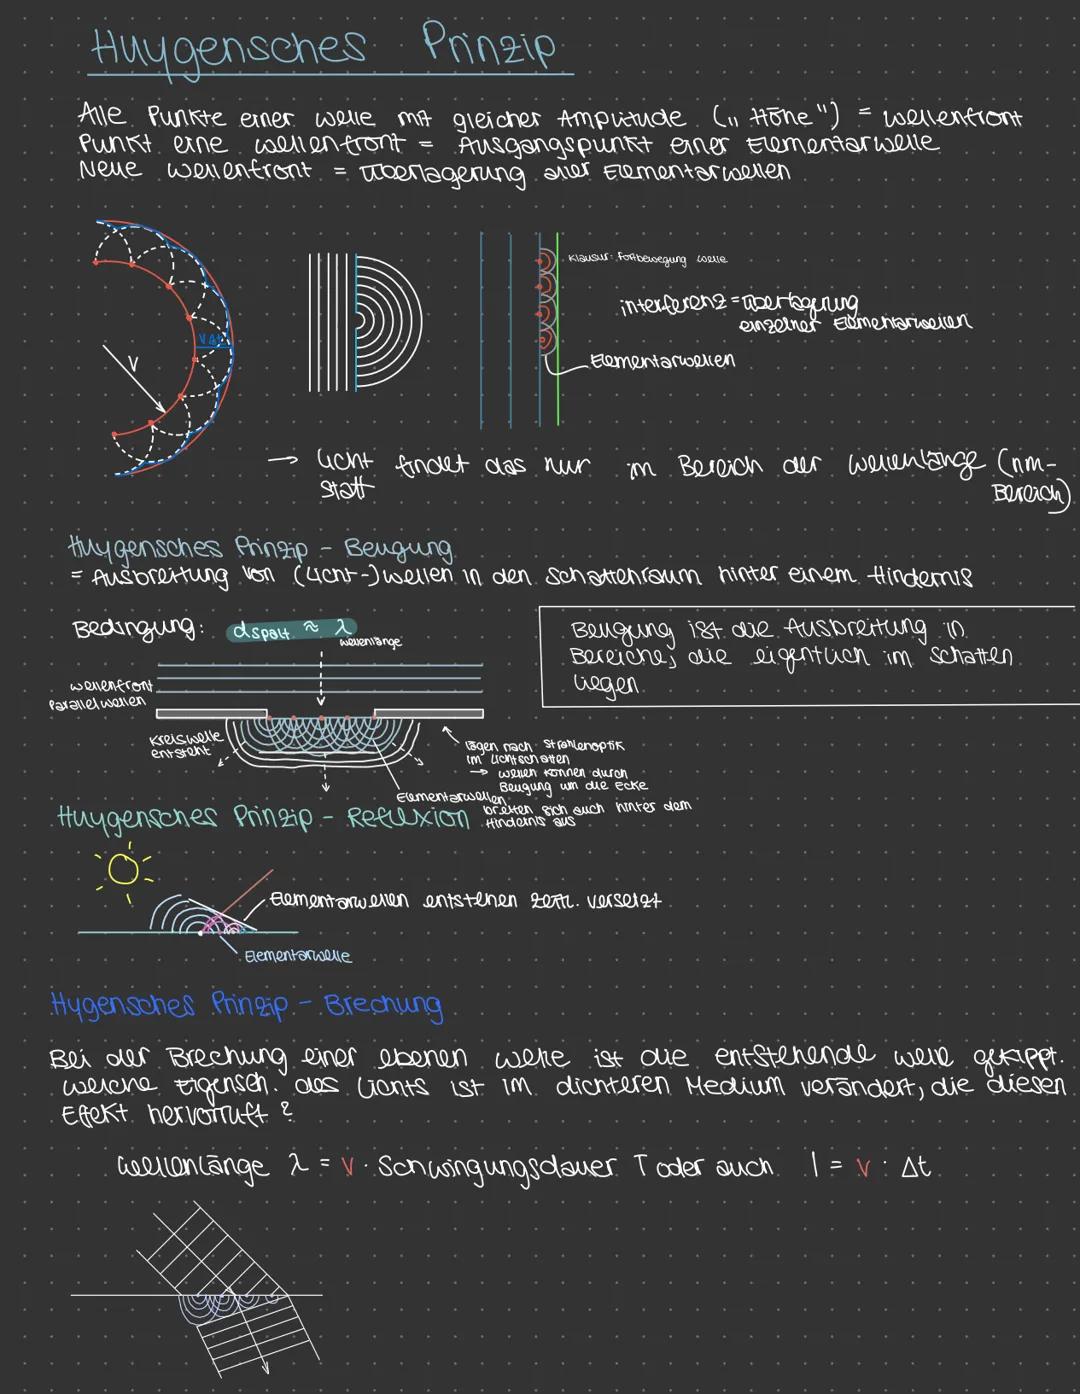 Huygensches Prinzip
Alle Punkte einer Welle mit gleicher Amplitude („Höhe") = Wellenfront
Punkt eine Wellenfront = Ausgangspunkt einer Elementarwelle
Neue Wellenfront = Überlagerung aller Elementarwellen
Klausur: Fortbewegung Welle
interferenz = Überlagerung
einzelner Elementarwellen
Elementarwellen
V
V Δt
→ Licht findet das nur im Bereich der Wellenlänge (nm-
statt Bereich)
Huygensches Prinzip - Beugung
= Ausbreitung von (Licht-)wellen in den Schattenraum hinter einem Hindernis
Bedingung: dspalt ≈ λ
wellenlänge
Beugung ist die Ausbreitung in
Bereiche, die eigentlich im Schatten
liegen
wellenfront
Parallelwellen
Kreiswelle
entsteht
lägen nach Strahlenoptik
im Lichtschatten
→ wellen können durch
Beugung um die Ecke
Elementarwellen
breiten sich auch hinter dem
Hindernis aus
Huygensches Prinzip - Reflexion
Elementarwellen entstehen zeitl. versetzt
Elementarwelle
Hygensches Prinzip - Brechung
Bei der Brechung einer ebenen Welle ist die entstehende Well gekippt.
Welche Eigensch. des Lichts ist im dichteren Medium verändert, die diesen
Effekt hervorruft?
Wellenlänge λ = v · Schwingungsdauer T oder auch l = v · Δt